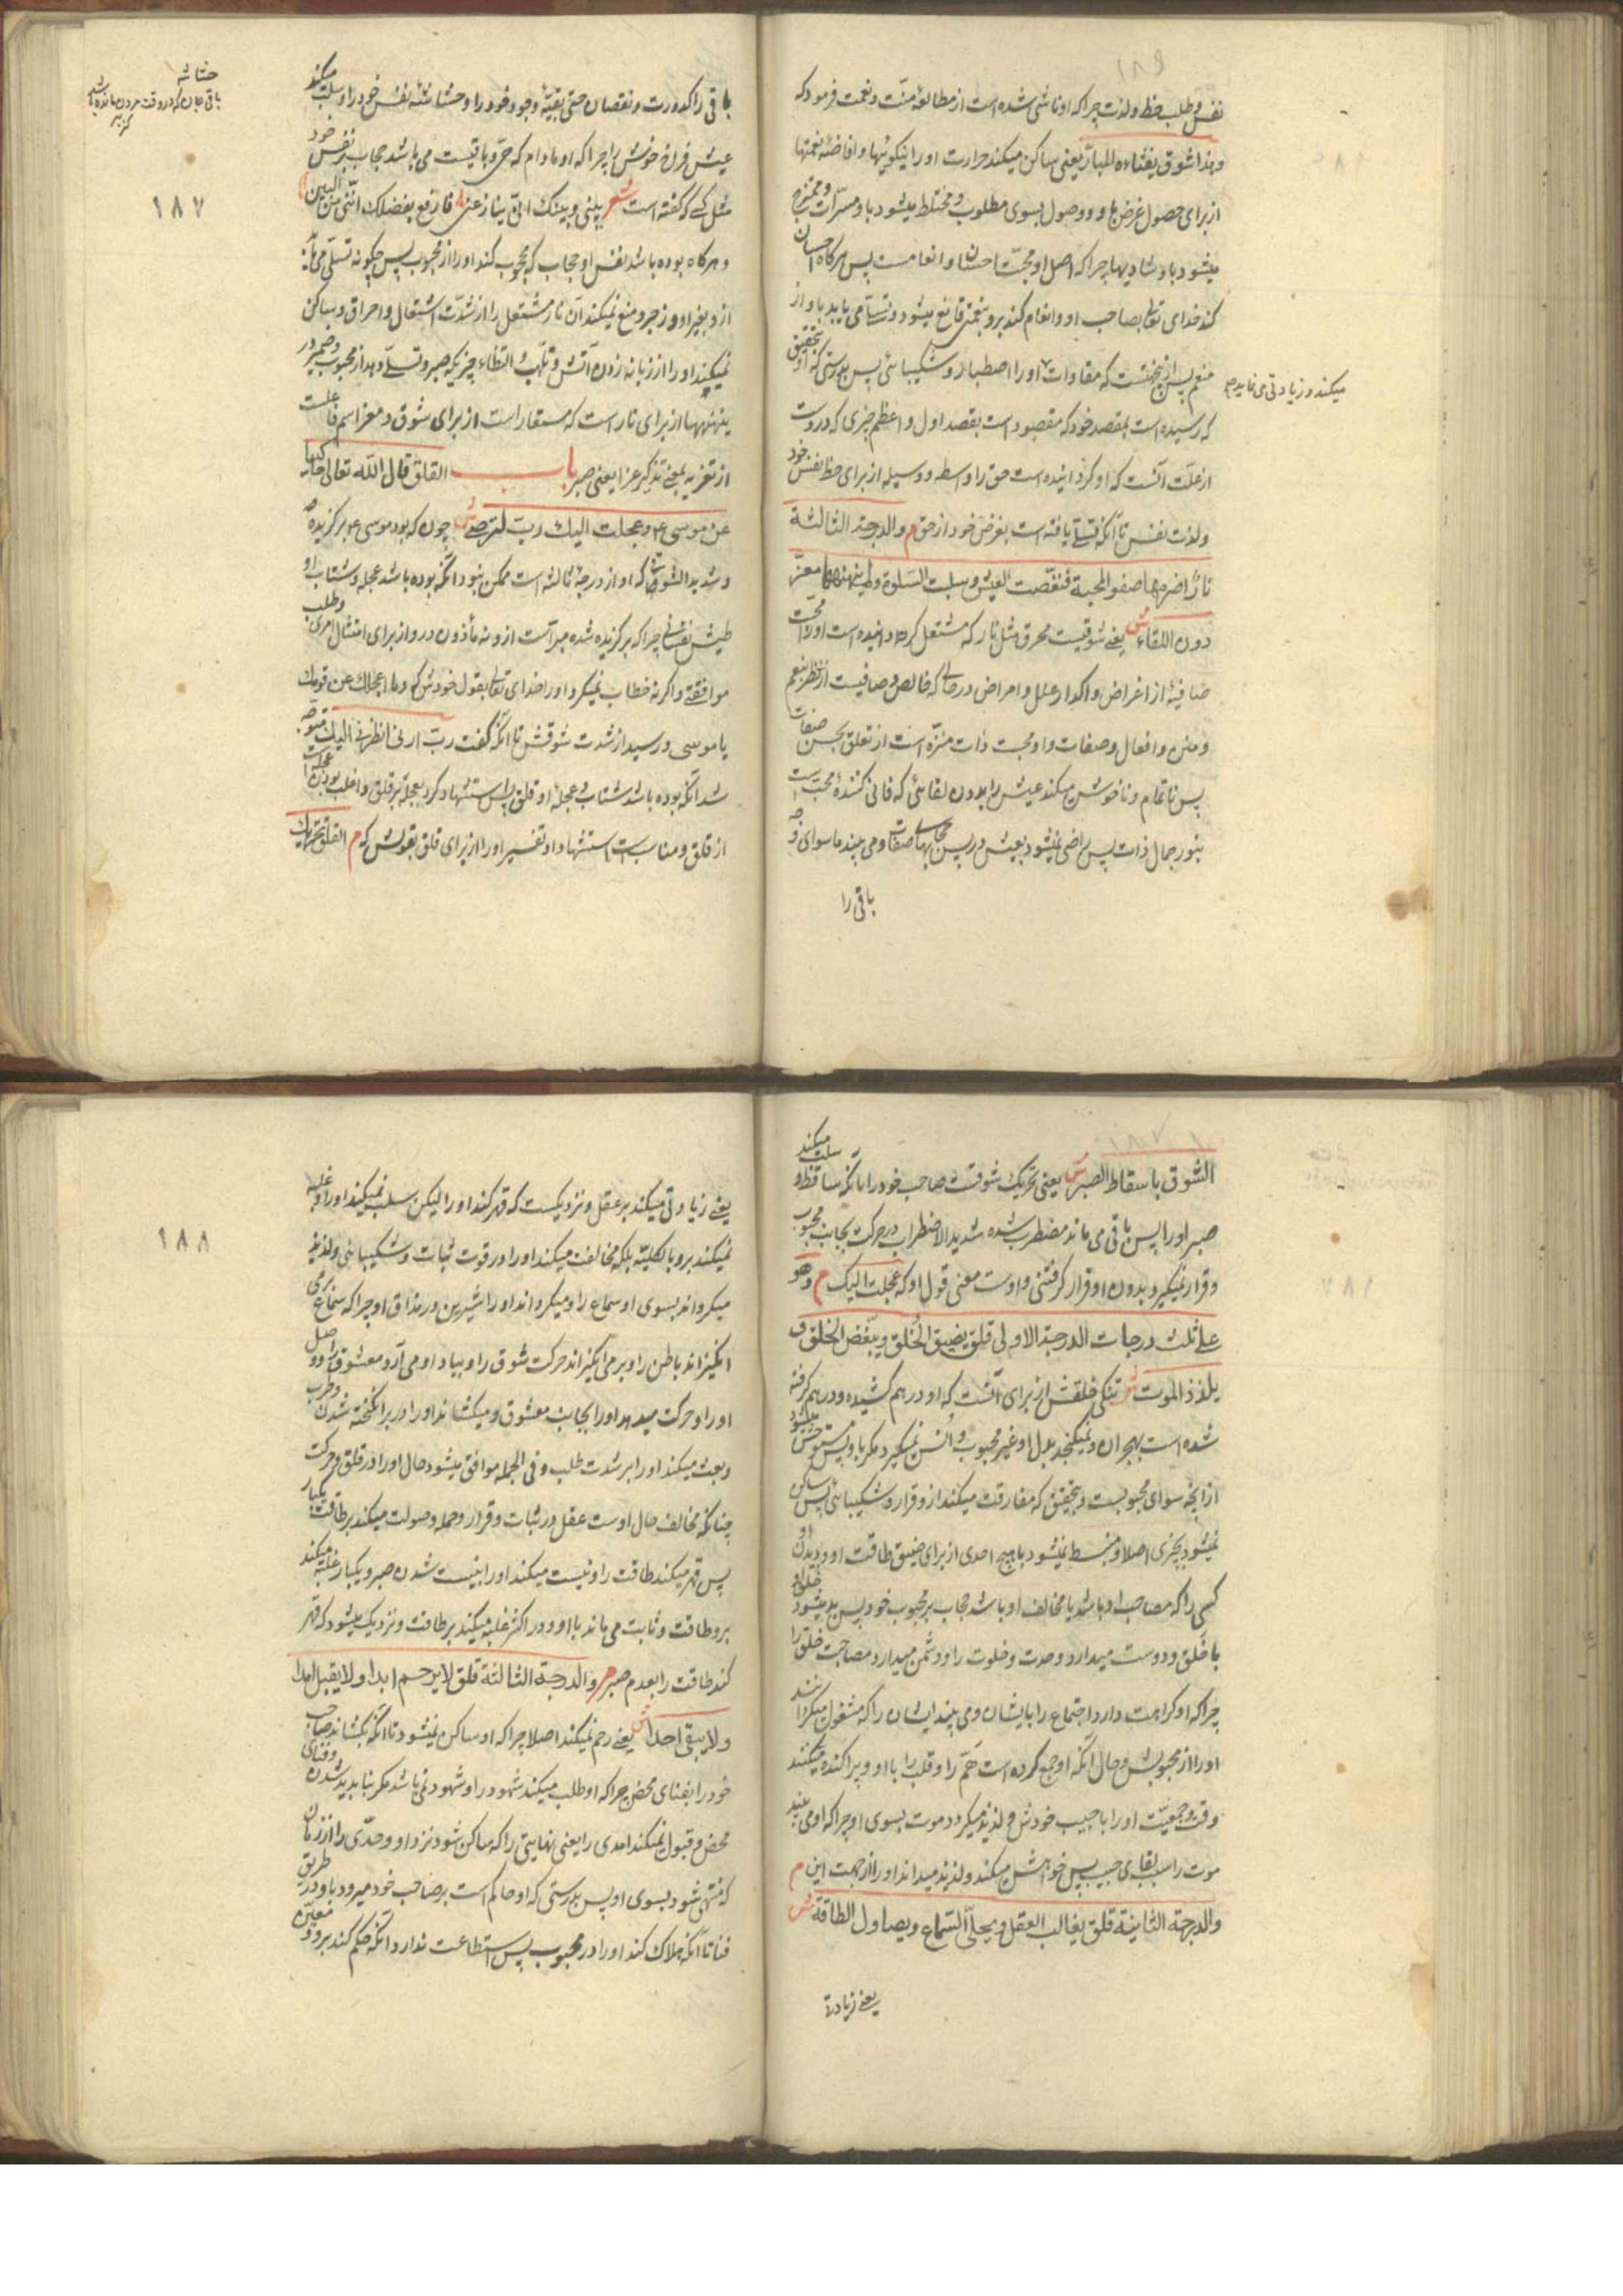 نفس و طلب حظ و لذت چرا که او ناشی شده است از مطالعهٔ منت و نعمت فرمود که
و هذا شوق یغشاه المبارّ یعنی ساکن میکند حرارت او را نیکوئیها و افاضهٔ نعمتها
از برای حصول غرضها و وصول بسوی مطلوب و مختلط میشود باو مسرّات و ممتزج
میشود باو شادیها چرا که اصل او محبّت احسان و انعامست پس هرکاه احسان
کند خدای تعا بصاحب او و انعام کند برو بنعمتی قانع میشود و تسلّی می یابد باو از
منعم پس ازینجهتست که مقاوات او را اصطبار و شکیبائی پس بدرستی که او بتحقیق
میکند و زیادتی می نماید
که رسیده است بمقصد خود که مقصود است بقصد اول و اعظم چیزی که دروست
از علّت آنست که او کردانیده است حق را واسطه و وسیله از برای حظ نفس خود
و لذت نفس تا آنکه تسلّی یافته است بغرض خود از حق م و الدرجة الثالثة
نار اضرمها صفو المحبة فنغّصت العیش و سلبت السلوة و لم ینهنهها معزّ
دون اللقاء ش یعنی شوقیست محرق مثل نار که مشتعل کردانیده است او را محبت
صافیه از اغراض و اکدار علل و امراض در حالی که خالص و صافیست از نظر بنعم
و منن و افعال و صفات و او محبت ذات منزّه است از تعلق بحسن صفات
پس ناتمام و ناخوش میکند عیش را بدون لقائی که فانی کنندهٔ محبّ است
بنور جمال ذات پس راضی نمیشود بعیش در پس حجابهای صفات و می بیند ماسوای وجه
باقی را
حشاشه
باقی جان که در وقت مردن مانده باشد
۱۸۷
باقی را کدورت و نقصان حتی بقیّهٔ وجود خود را و حشاشهٔ نفس خود را و سلب میکند
عیش فرن خوش را چرا که او مادام که حیّ و باقیست می باشد حجاب بر نفس خود
مثل کسی که گفته است شعر بینی و بینک انّی ینازعنی فارفع بفضلک انّیی من البین
و هرکاه بوده باشد نفس او حجاب که محجوب کند او را از محبوب پس چگونه تسلّی می یابد
ازو بغیر او و زجر و منع نمیکند آن نار مشتعل را از شدّت اشتعال و احراق و ساکن
نمیکند او را از زبانه زدن آتش و تلهّب التظاء چیزیکه صبر و تسلّی دهد از محبوب و ضمیر در
ینهنهها از برای نار است که مستعار است از برای شوق و معز اسم فاعلست
از تعزیه بمعنی تذکیر عزا یعنی صبر باب القلق قال الله تعالی حاکیا
عن موسی ع و عجلت الیک ربّ لترضی ش چون که بود موسی ع بر گزیده
و شدید الشوق که او از درجهٔ ثالثه است ممکن نبود آنکه بوده باشد عجله و شتاب او
طیش نفسانی چرا که برگزیده شده مبراست ازو نه مأذون درو از برای امتثال امری و طلب
موافقتی و اگر نه خطاب نمیکرد او را خدای تعا بقول خودش که و ما اعجلک عن قومک
یا موسی و رسید از شدت شوقش تا آنکه گفت ربّ ارنی انظر الیک متوجه
شد آنکه بوده باشد شتاب و عجلهٔ او قلق پس استشهاد کرد بعجله بر قلق و اغلب بودن عجلت
از قلق و مناسبت استشهاد او تفسیر او را از برای قلق بقولش که م القلق تحریک
الشوق باسقاط الصبر ش یعنی تحریک شوقست صاحب خود را با آنکه ساقط و سلب میکند
صبر او را پس باقی می ماند مضطرب شده شدید الاضطراب در حرکت بجانب محبوب
و قرار نمیگیرد بدون او قرار گرفتنی و اوست معنی قول او که عجلت الیک م و هو
علی ثلث درجات الدرجة الاولی قلق یضیق الخُلق و یبغّض الخَلق و
یلذذ الموت ش تنگی خلقش از برای آنست که او درهم کشیده و درهم گرفته
شده است بهجران و نمیگنجد بدل او غیر محبوب و اُنس نمیگیرد مگر باو پس متوحش میشود
از آنچه سوای محبوبست و بتحقیق که مفارقت میکند ازو قرار و شکیبائی پس ساکن
نمیشود بچیزی اصلا و منبسط نمیشود با هیچ احدی از برای ضیق طاقت او و دیدن او
کسی را که مصاحب او باشد یا مخالف او باشد حجاب بر محبوب خود پس بد میشود خلق او
با خلق و دوست میدارد وحدت و خلوت را و دشمن میدارد مصاحبت خلق را
چرا که او کراهت دارد اجتماع را بایشان و می بیند ایشان را که مشغول میکردانند
او را از محبوبش و حال آنکه او جمع کرده است همّ را و قلب را با او و پراکنده میکنند
وقت و جمعیّت او را با حبیب خودش و لذیذ میکردد موت بسوی او چرا که او می بیند
موت را سبب لقای حبیب پس خواهش میکند و لذیذ میداند او را از جهت این م
و الدرجة الثانیة قلق یغالب العقل و یحلّی السماع و یصاول الطاقة ش
یعنی زیادتی
۱۸۸
یعنی زیادتی میکند بر عقل و نزدیکست که قهر کند او را لیکن سلب نمیکند او را و غلبه
نمیکند برو بالکلیّة بلکه مخالفت میکند او را در قوت ثبات و شکیبائی و لذیذ
میکرداند بسوی او سماع را و میکرداند او را شیرین در مذاق او چرا که سماع می
انگیزاند باطن را و بر می انگیزاند حرکت شوق را و بیاد او می آرد معشوق را و اصل
او را و حرکت میدهد او را بجانب معشوق و میکشاند او را در برانگیخته شدن و طرب
و بعث میکند او را بر شدت طلب و فی الجمله موافق میشود حال او را در قلق و حرکت
چنانکه مخالف حال اوست عقل در ثبات و قرار و حمله و صولت میکند بر طاقت یکبار
پس قهر میکند طاقت را و نیست میکند او را بنیست شدن صبر و یکبار غلبه میکند
برو طاقت و ثابت می ماند با او و در اکثر غلبه میکند بر طاقت و نزدیک میشود که قهر
کند طاقت را بعدم صبر م و الدرجة الثالثة قلق لا یرحم ابدا و لا یقبل امدا
و لا یبقی احدا ش یعنی رحم نمیکند اصلا چرا که او ساکن نمیشود تا آنکه بکشاند صاحب
خود را بفنای محض چرا که او طلب میکند شهود را و شهود نمی باشد مگر بناپدید شدن و فنای
محض و قبول نمیکند امدی را یعنی نهایتی را که ساکن شود نزد او و حدّی را از زمان
که منتهی شود بسوی او پس بدرستی که او حاکم است بر صاحب خود میرود باو در طریق
فنا تا آنکه هلاک کند او را در محبوب پس استطاعت ندارد آنکه حکم کند برو و معیّن